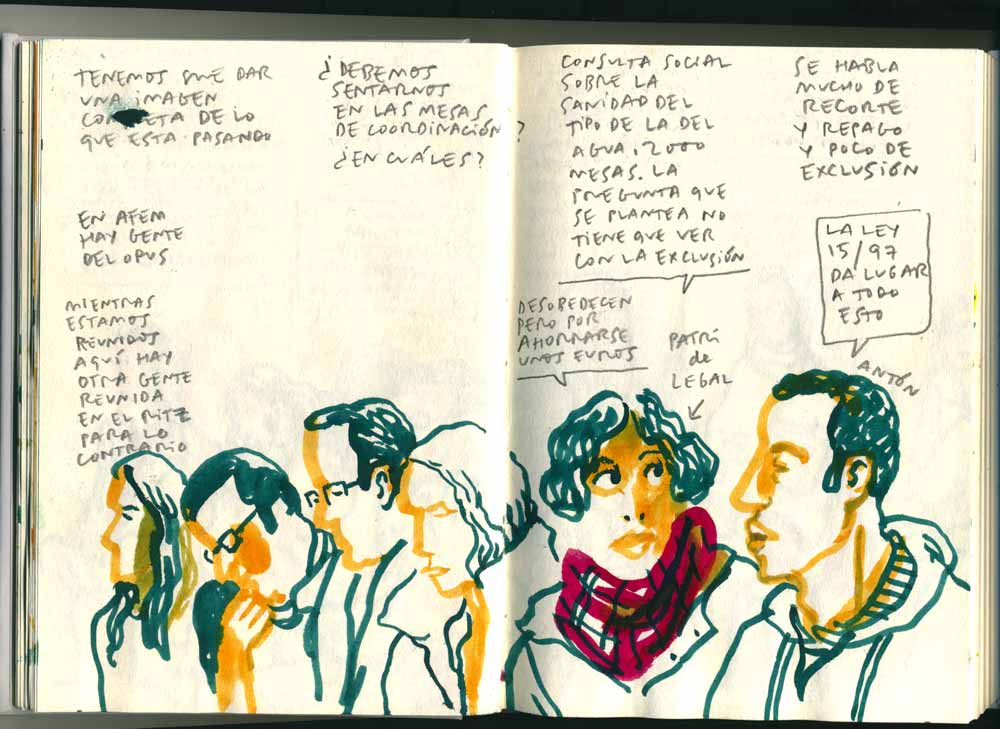 TENEMOS QUE DAR
UNA IMAGEN
DE LO
QUE ESTA PASANDO
EN AFEM
HAY GENTE
DEL OPUS
MIENTRAS
ESTAMOS
REUNIDOS
AQUÍ HAY
OTRA GENTE
REUNIDA
EN EL RITZ
PARA LO
CONTRARIO
¿DEBEMOS
SENTARNOS
EN LAS MESAS
DE COORDINACIÓN?
¿EN CUÁLES?
CONSULTA SOCIAL
SOBRE LA
SANIDAD DEL
TIPO DE LA DEL
AGUA. 2000
MESAS. LA
PREGUNTA QUE
SE PLANTEA NO
TIENE QUE VER
CON LA EXCLUSIÓN
DESOBEDECEN
PERO POR
AHORRARSE
UNOS EUROS
PATRI
de
LEGAL
SE HABLA
MUCHO DE
RECORTE
Y REPAGO
Y POCO DE
EXCLUSIÓN
LA LEY
15/97
DA LUGAR
A TODO
ESTO
ANTÓN